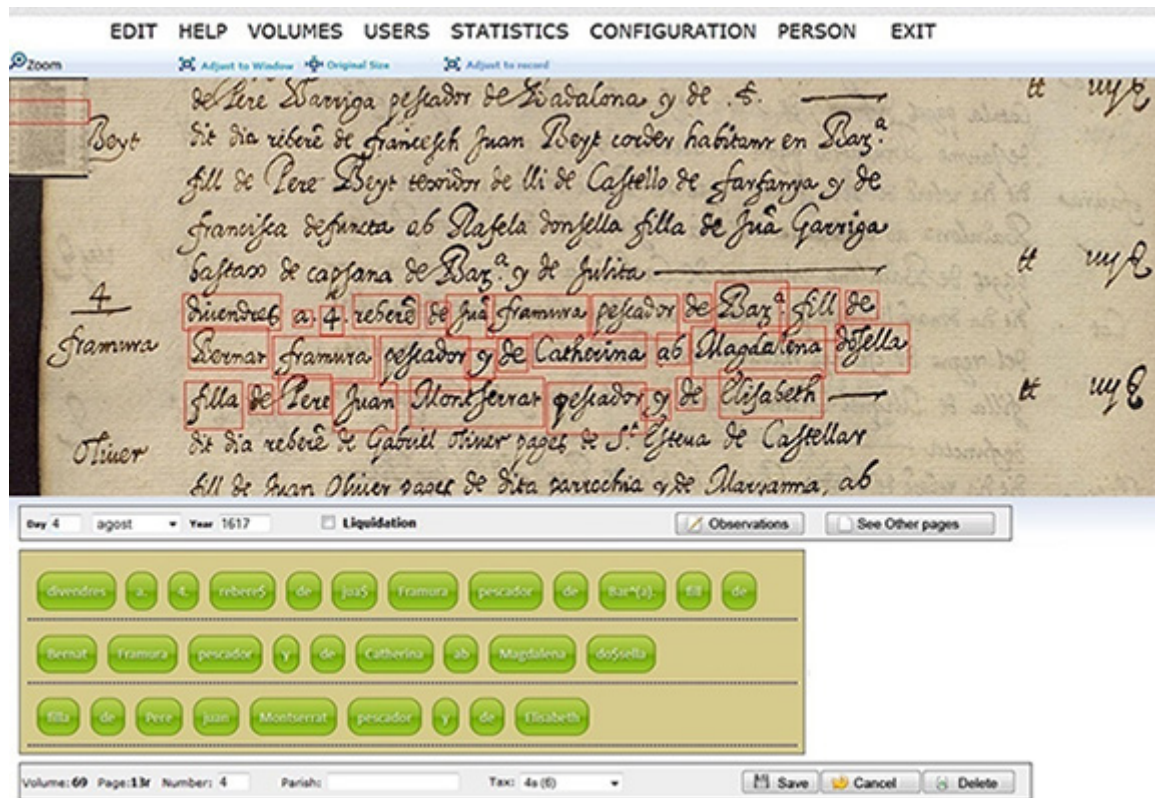 EDIT HELP VOLUMES USERS STATISTICS CONFIGURATION PERSON EXIT
Zoom Adjust to Window Original Size Adjust to record
de Pere Barriga pescador de Badalona y de .S. tt
Beyt dit dia reberē de francesch Juan Beyt corder habitant en Barᵃ
fill de Pere Beyt texidor de lli de Castello de farfanya y de
francisca defuncta ab Rafela donsella filla de Juā Garriga
bastaix de capsana de Barᵃ. y de Julita tt
4 divendres a. 4. reberē de Juā framura pescador de Barᵃ. fill de
framura Bernat framura pescador y de Catherina ab Magdalena dōsella
filla de Pere Juan Montserrat pescador y de Elisabeth tt
Oliver dit dia reberē de Gabriel Oliver pages de Sᵗ Esteva de Castellar
fill de Juan Oliver pages de dita parrochia y de Marianna, ab
Day 4 agost Year 1617 Liquidation Observations See Other pages
divendres a. 4. rebere$ de jua$ Framura pescador de Bar^(a). fill de
Bernat Framura pescador y de Catherina ab Magdalena do$sella
filla de Pere juan Montserrat pescador y de Elisabeth
Volume: 69 Page: 13r Number: 4 Parish: Tax: 4s (6) Save Cancel Delete